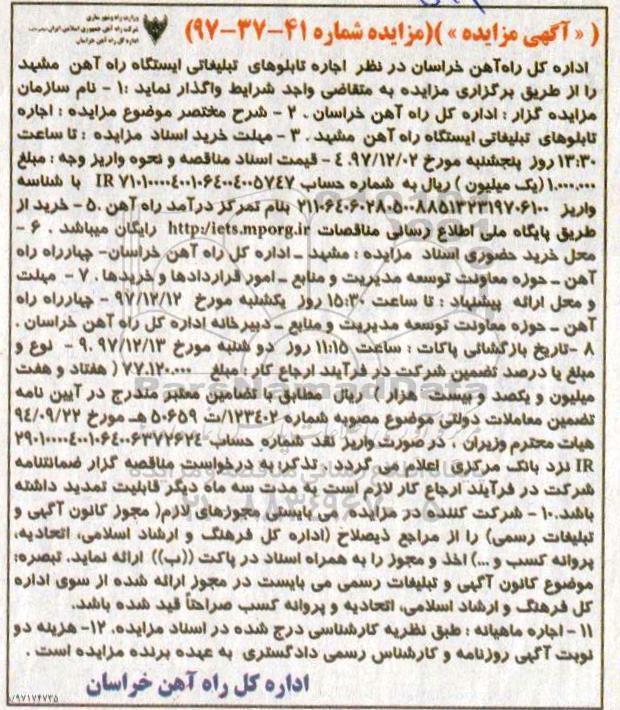 وزارت راه و شهرسازی
شرکت راه آهن جمهوری اسلامی ایران
اداره کل راه آهن خراسان
( « آگهی مزایده » )(مزایده شماره ۴۱-۳۷-۹۷)
اداره کل راه‌آهن خراسان در نظر اجاره تابلوهای تبلیغاتی ایستگاه راه آهن مشهد
را از طریق برگزاری مزایده به متقاضی واجد شرایط واگذار نماید :۱ - نام سازمان
مزایده گزار : اداره کل راه آهن خراسان . ۲ - شرح مختصر موضوع مزایده : اجاره
تابلوهای تبلیغاتی ایستگاه راه آهن مشهد . ۳ - مهلت خرید اسناد مزایده : تا ساعت
۱۳:۳۰ روز پنجشنبه مورخ ۹۷/۱۲/۰۲. ۴ - قیمت اسناد مناقصه و نحوه واریز وجه : مبلغ
۱.۰۰۰.۰۰۰ (یک میلیون ) ریال به شماره حساب IR ۷۱۰۱۰۰۰۰۴۰۰۱۰۶۴۰۰۴۰۰۵۷۴۷ با شناسه
واریز ۲۱۱۰۶۴۰۶۰۲۸۰۵۰۰۸۸۵۱۳۲۳۱۹۷۰۶۱۰۰ بنام تمرکز درآمد راه آهن .۵ - خرید از
طریق پایگاه ملی اطلاع رسانی مناقصات http:/iets.mporg.ir رایگان میباشد . ۶ -
محل خرید حضوری اسناد مزایده : مشهد _ اداره کل راه آهن خراسان- چهارراه راه
آهن _ حوزه معاونت توسعه مدیریت و منابع _ امور قراردادها و خریدها . ۷ - مهلت
و محل ارائه پیشنهاد : تا ساعت ۱۵:۳۰ روز یکشنبه مورخ ۹۷/۱۲/۱۲ - چهارراه راه
آهن _ حوزه معاونت توسعه مدیریت و منابع _ دبیرخانه اداره کل راه آهن خراسان .
۸ -تاریخ بازگشائی پاکات : ساعت ۱۱:۱۵ روز دو شنبه مورخ ۹۷/۱۲/۱۳ .۹ - نوع و
مبلغ یا درصد تضمین شرکت در فرآیند ارجاع کار : مبلغ ۷۷.۱۲۰.۰۰۰ ( هفتاد و هفت
میلیون و یکصد و بیست هزار ) ریال مطابق با تضامین معتبر مندرج در آیین نامه
تضمین معاملات دولتی موضوع مصوبه شماره ۱۲۳۴۰۲/ت ۵۰۶۵۹ هـ مورخ ۹۴/۰۹/۲۲
هیات محترم وزیران . در صورت واریز نقد شماره حساب ۲۹۰۱۰۰۰۰۴۰۰۱۰۶۴۰۰۶۳۷۲۶۲۴
IR نزد بانک مرکزی اعلام می گردد . تذکر: به درخواست مناقصه گزار ضمانتنامه
شرکت در فرآیند ارجاع کار لازم است به مدت سه ماه دیگر قابلیت تمدید داشته
باشد.۱۰ - شرکت کننده در مزایده می بایستی مجوزهای لازم( مجوز کانون آگهی و
تبلیغات رسمی) را از مراجع ذیصلاح (اداره کل فرهنگ و ارشاد اسلامی، اتحادیه،
پروانه کسب و ...) اخذ و مجوز را به همراه اسناد در پاکت ((ب)) ارائه نماید. تبصره:
موضوع کانون آگهی و تبلیغات رسمی می بایست در مجوز ارائه شده از سوی اداره
کل فرهنگ و ارشاد اسلامی، اتحادیه و پروانه کسب صراحتاً قید شده باشد.
۱۱ - اجاره ماهیانه : طبق نظریه کارشناسی درج شده در اسناد مزایده. ۱۲- هزینه دو
نوبت آگهی روزنامه و کارشناس رسمی دادگستری به عهده برنده مزایده است .
اداره کل راه آهن خراسان
۹۷۱۷۴۷۳۵/
ParsNamadData